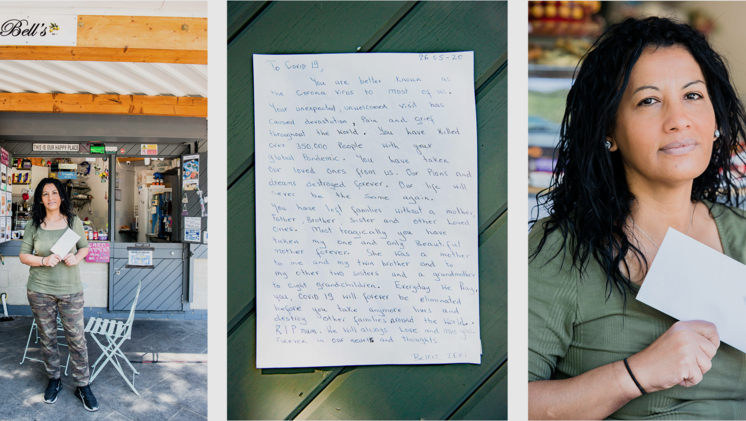 Bell's
THIS IS OUR HAPPY PLACE
26-05-20
To Covid 19,
You are better known as
the Corona Virus to most of us.
Your unexpected, unwelcomed visit has
caused devastation, Pain and grief
throughout the World. You have killed
over 350,000 People with your
global Pandemic. You have taken
our loved ones from us. Our Plans and
dreams destroyed forever. Our life will
never be the same again.
You have left families without a mother,
Father, Brother, Sister and other Loved
ones. Most tragically you have
taken my one and only Beautiful
mother forever. She was a mother
to me and my twin brother and to
my other two sisters and a grandmother
to Eight grandchildren. Everyday We Pray,
you, COVID 19 will forever be eliminated
before you take anymore lives and
destroy other families around the World.
R.I.P mum. We will always Love and
forever in our hearts and thoughts